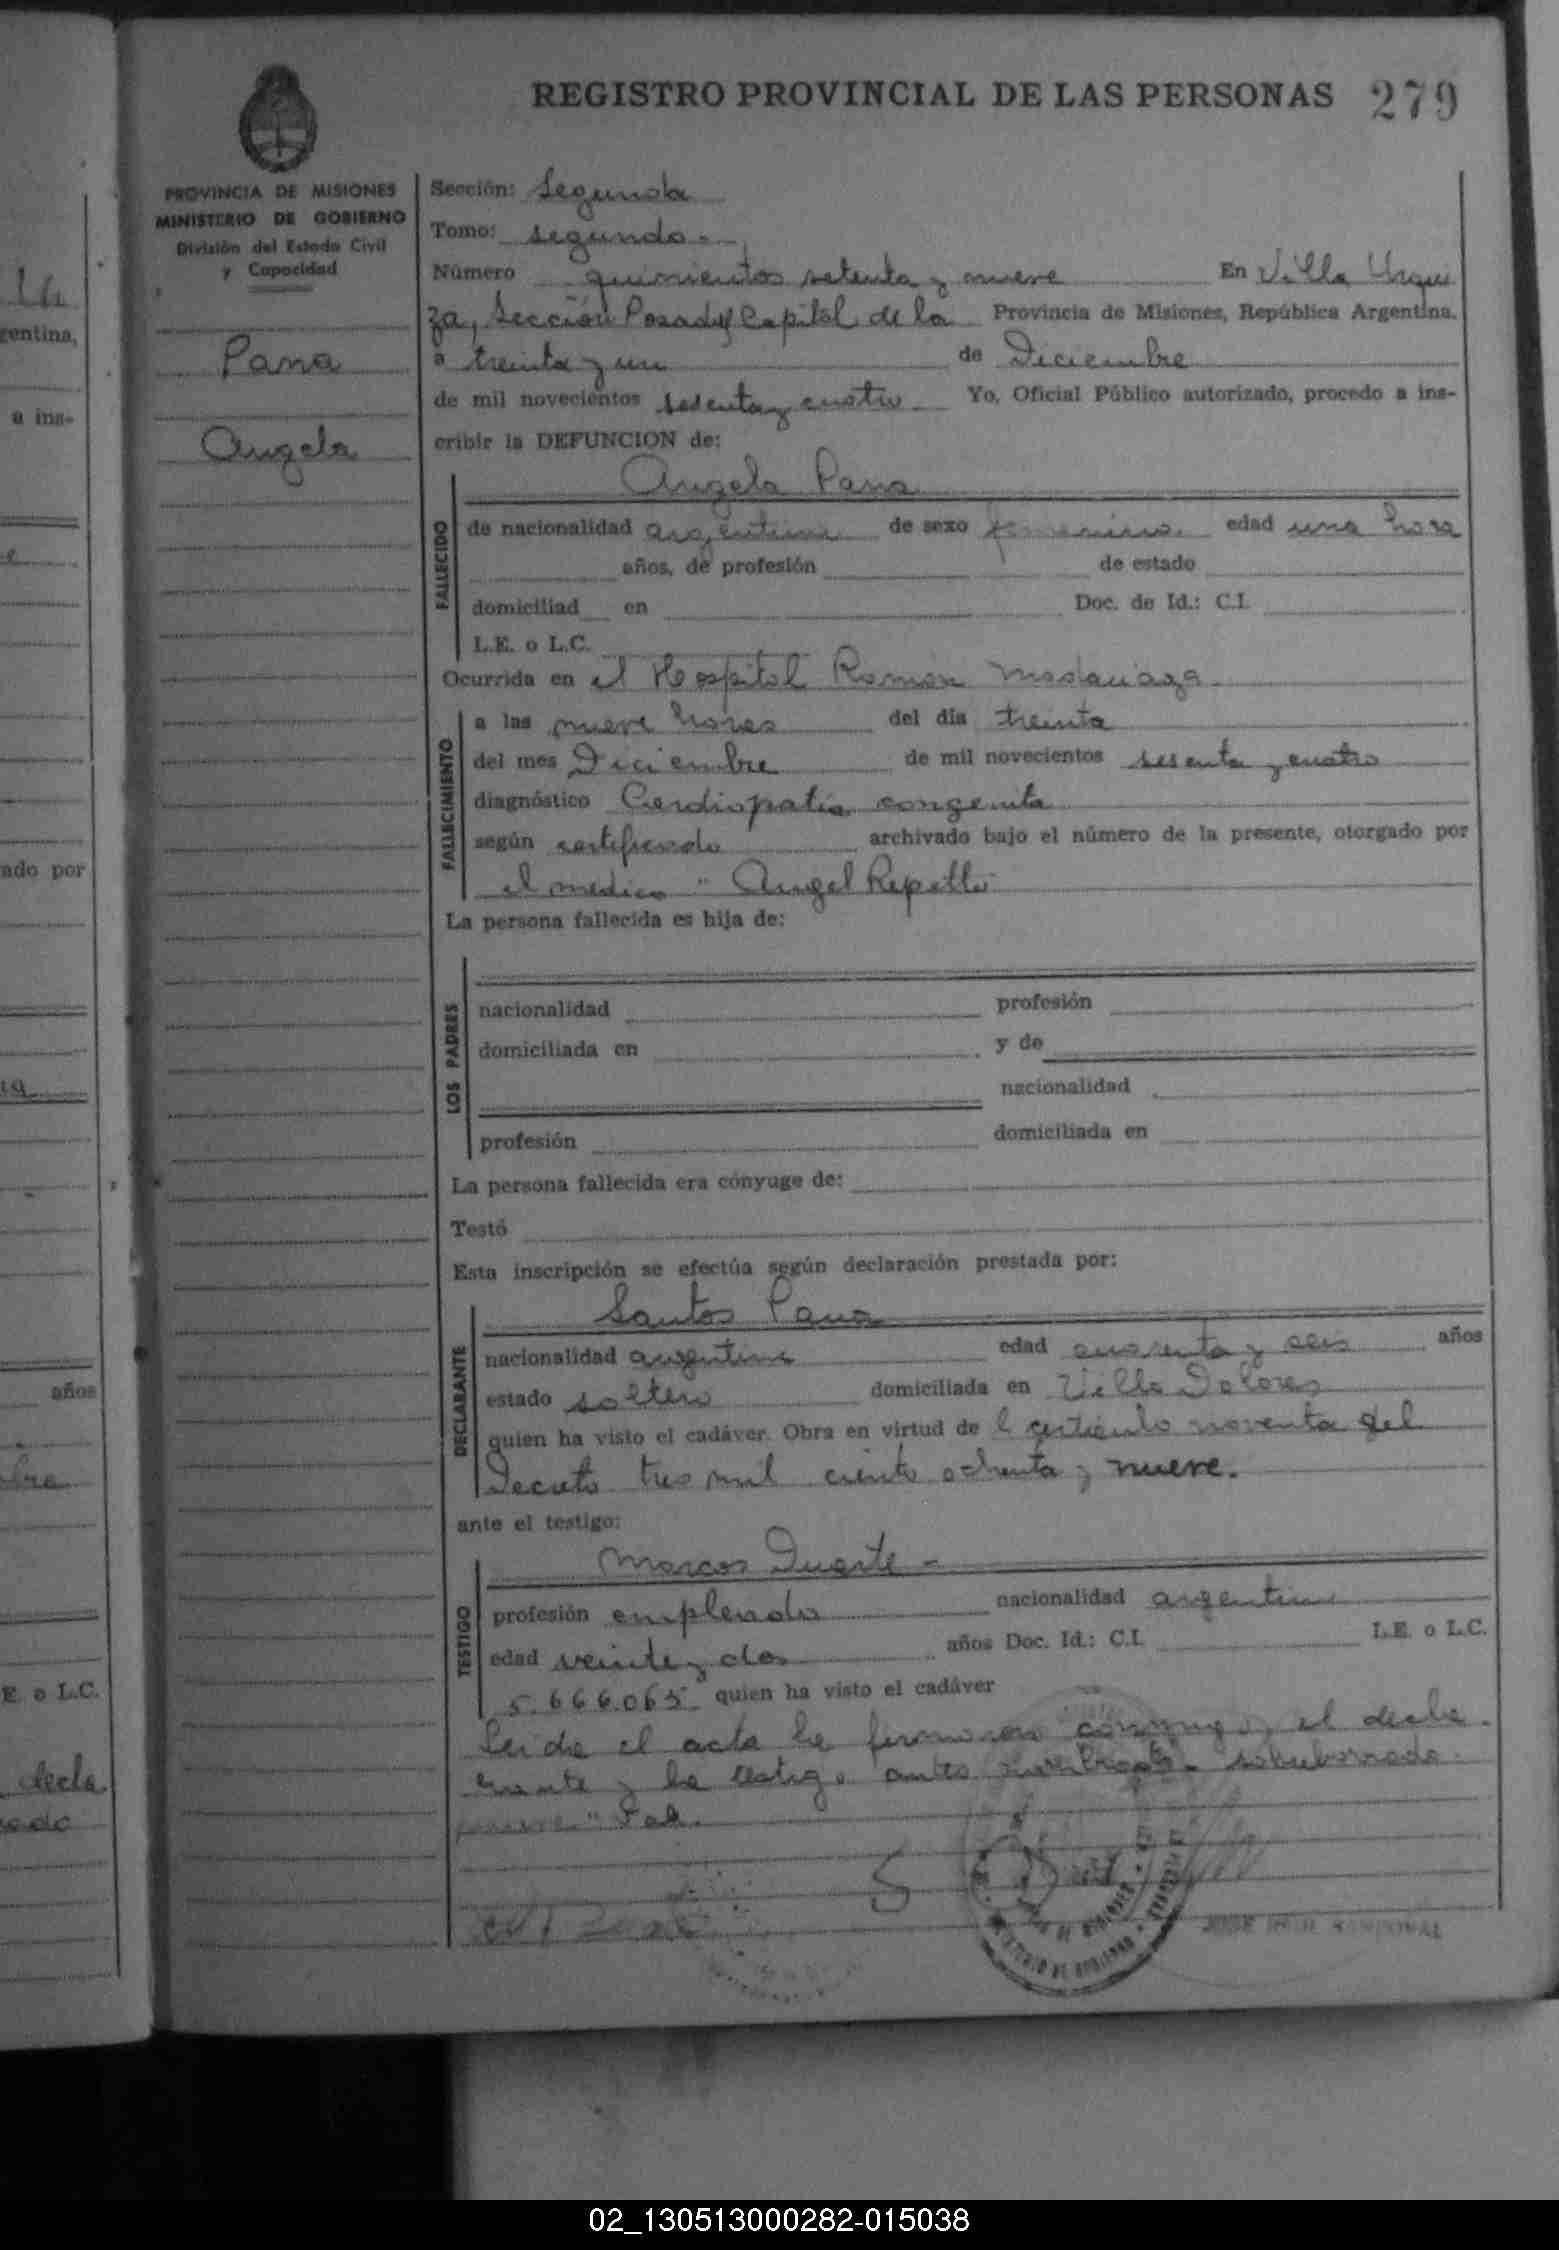 REGISTRO PROVINCIAL DE LAS PERSONAS 279
PROVINCIA DE MISIONES
MINISTERIO DE GOBIERNO
División del Estado Civil
y Capacidad
Pana
Angela
Sección: Segunda
Tomo: segundo.-
Número quinientos setenta y nueve En Villa Urqui
za, Sección Posadas Capital de la Provincia de Misiones, República Argentina,
a treinta y un de Diciembre
de mil novecientos sesenta y cuatro Yo, Oficial Público autorizado, procedo a ins-
cribir la DEFUNCION de:
Angela Pana
FALLECIDO
de nacionalidad argentina de sexo femenino. edad una hora
años, de profesión de estado
domiciliad en Doc. de Id.: C.I.
L.E. o L.C.
Ocurrida en el Hospital Ramón Madariaga.
FALLECIMIENTO
a las nueve horas del día treinta
del mes Diciembre de mil novecientos sesenta y cuatro
diagnóstico Cardiopatia congenita
según certificado archivado bajo el número de la presente, otorgado por
el medico " Angel
La persona fallecida es hija de:
LOS PADRES
nacionalidad profesión
domiciliada en y de
nacionalidad
profesión domiciliada en
La persona fallecida era cónyuge de:
Testó
Esta inscripción se efectúa según declaración prestada por:
Santos Pana
DECLARANTE
nacionalidad argentina edad cuarenta y seis años
estado soltero domiciliada en Villa Dolores
quien ha visto el cadáver. Obra en virtud de l articulo noventa del
Decreto tres mil ciento ochenta y nueve.
ante el testigo:
Marcos Duarte -
TESTIGO
profesión empleado nacionalidad argentina
edad veinte y dos años Doc. Id.: C.I. L.E. o L.C.
5.666.065 quien ha visto el cadáver
Leida el acta la firmaron conmigo, el decla
rante y la testigo antes sobreborrado
Vale.
02_130513000282-015038